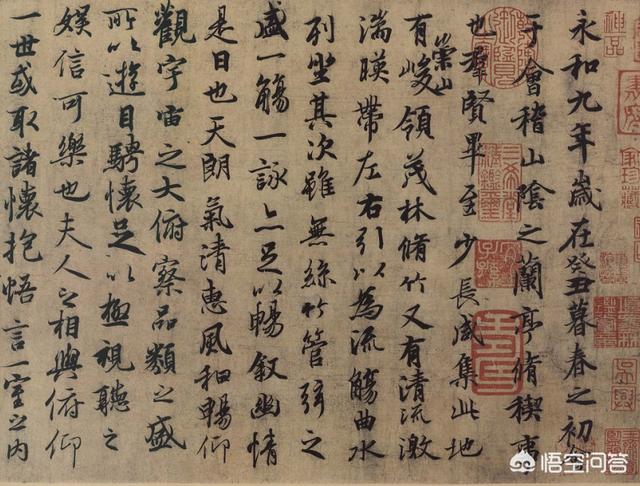 永和九年歲在癸丑暮春之初會
于會稽山陰之蘭亭脩稧事
也羣賢畢至少長咸集此地
有崇山峻領茂林脩竹又有清流激
湍暎帶左右引以為流觴曲水
列坐其次雖無絲竹管弦之
盛一觴一詠亦足以暢敘幽情
是日也天朗氣清惠風和暢仰
觀宇宙之大俯察品類之盛
所以遊目騁懷足以極視聽之
娛信可樂也夫人之相與俯仰
一世或取諸懷抱悟言一室之內
悟空问答